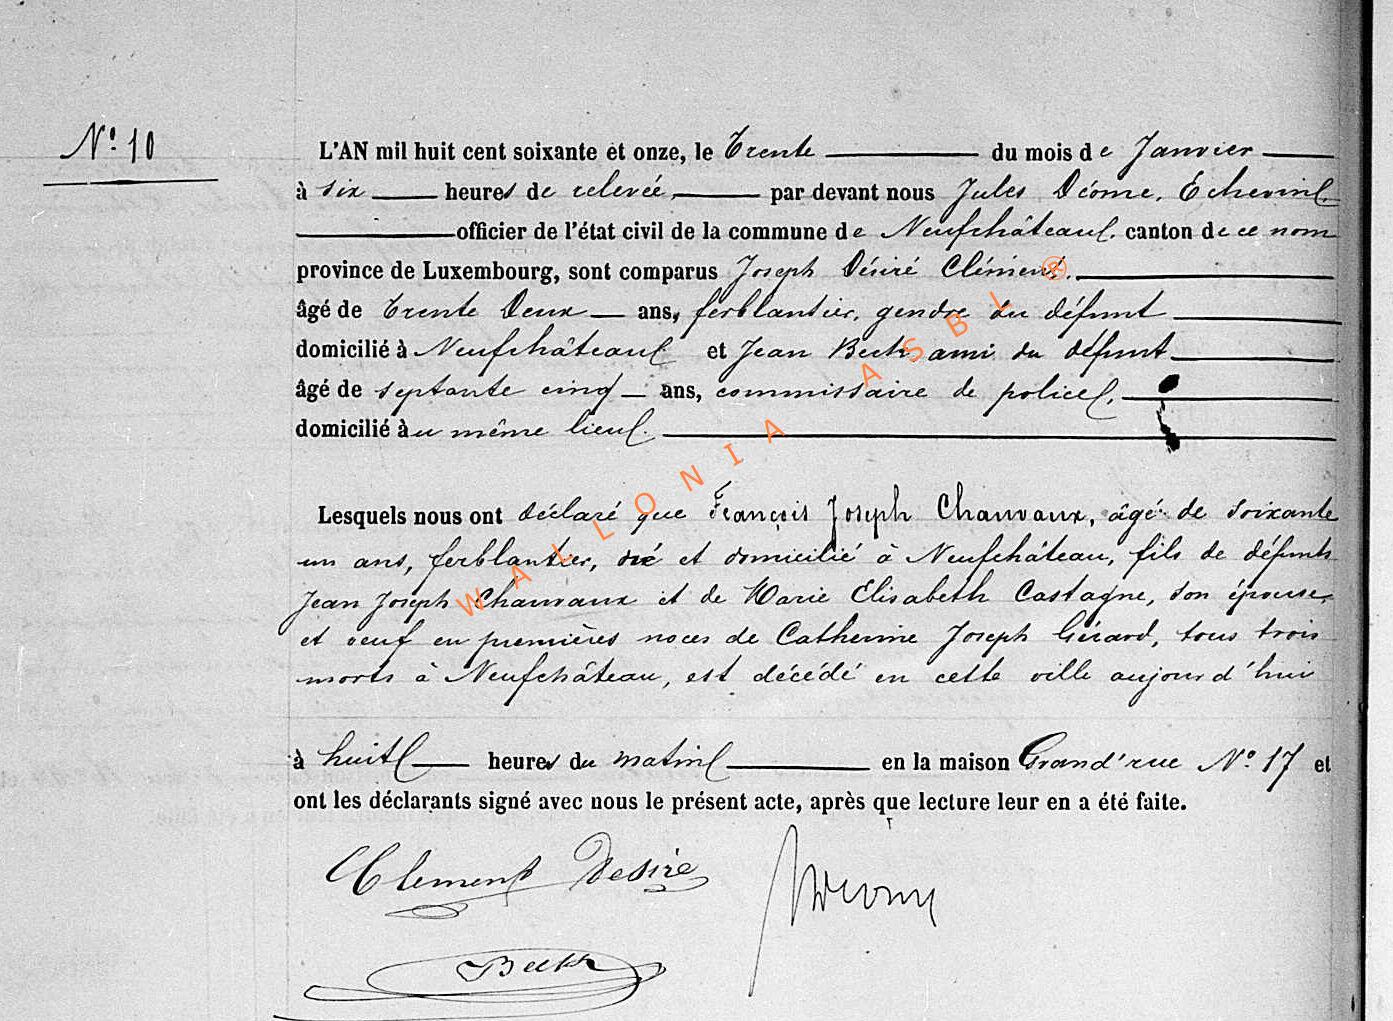 N° 10
L'AN mil huit cent soixante et onze, le Trente du mois de Janvier
à six heures de relevée, par devant nous Jules Déome, Échevin,
officier de l'état civil de la commune de Neufchâteau, canton de ce nom
province de Luxembourg, sont comparus Joseph Désiré Clément,
âgé de trente Deux ans, ferblantier, gendre du défunt
domicilié à Neufchâteau et Jean Beck ami du défunt
âgé de septante cinq ans, commissaire de police,
domicilié au même lieu.
Lesquels nous ont déclaré que François Joseph Chauvaux, âgé de soixante
un ans, ferblantier, né et domicilié à Neufchâteau, fils de défunts
Jean Joseph Chauvaux et de Marie Elisabeth Castagne, son épouse,
et veuf en premières noces de Catherine Joseph Gérard, tous trois
morts à Neufchâteau, est décédé en cette ville aujourd'hui
à huit heures du matin en la maison Grand'rue N° 17 et
ont les déclarants signé avec nous le présent acte, après que lecture leur en a été faite.
Clement Desire
JDeome
Beck
WALLONIA ASBL ®